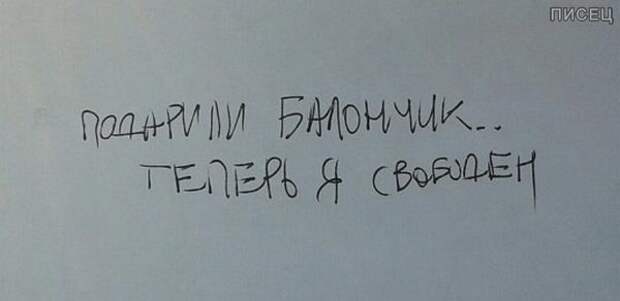 ПИСЕЦ
ПОДАРИЛИ БАЛОНЧИК..
ТЕПЕРЬ Я СВОБОДЕН